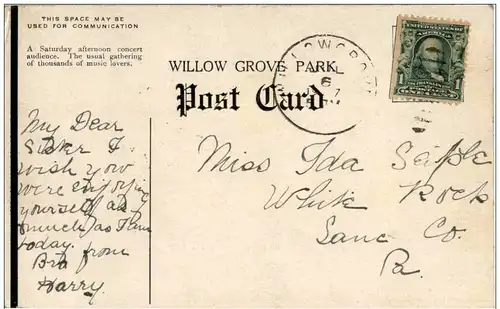 THIS SPACE MAY BE
USED FOR COMMUNICATION
A Saturday afternoon concert
audience. The usual gathering
of thousands of music lovers.
WILLOW GROVE PARK
Post Card
My Dear
Sister I
wish you
were enjoying
yourself as
much as I am
today.
Bro from
Harry.
Miss Ida Seiple
White Rock
Lanc Co.
Pa.